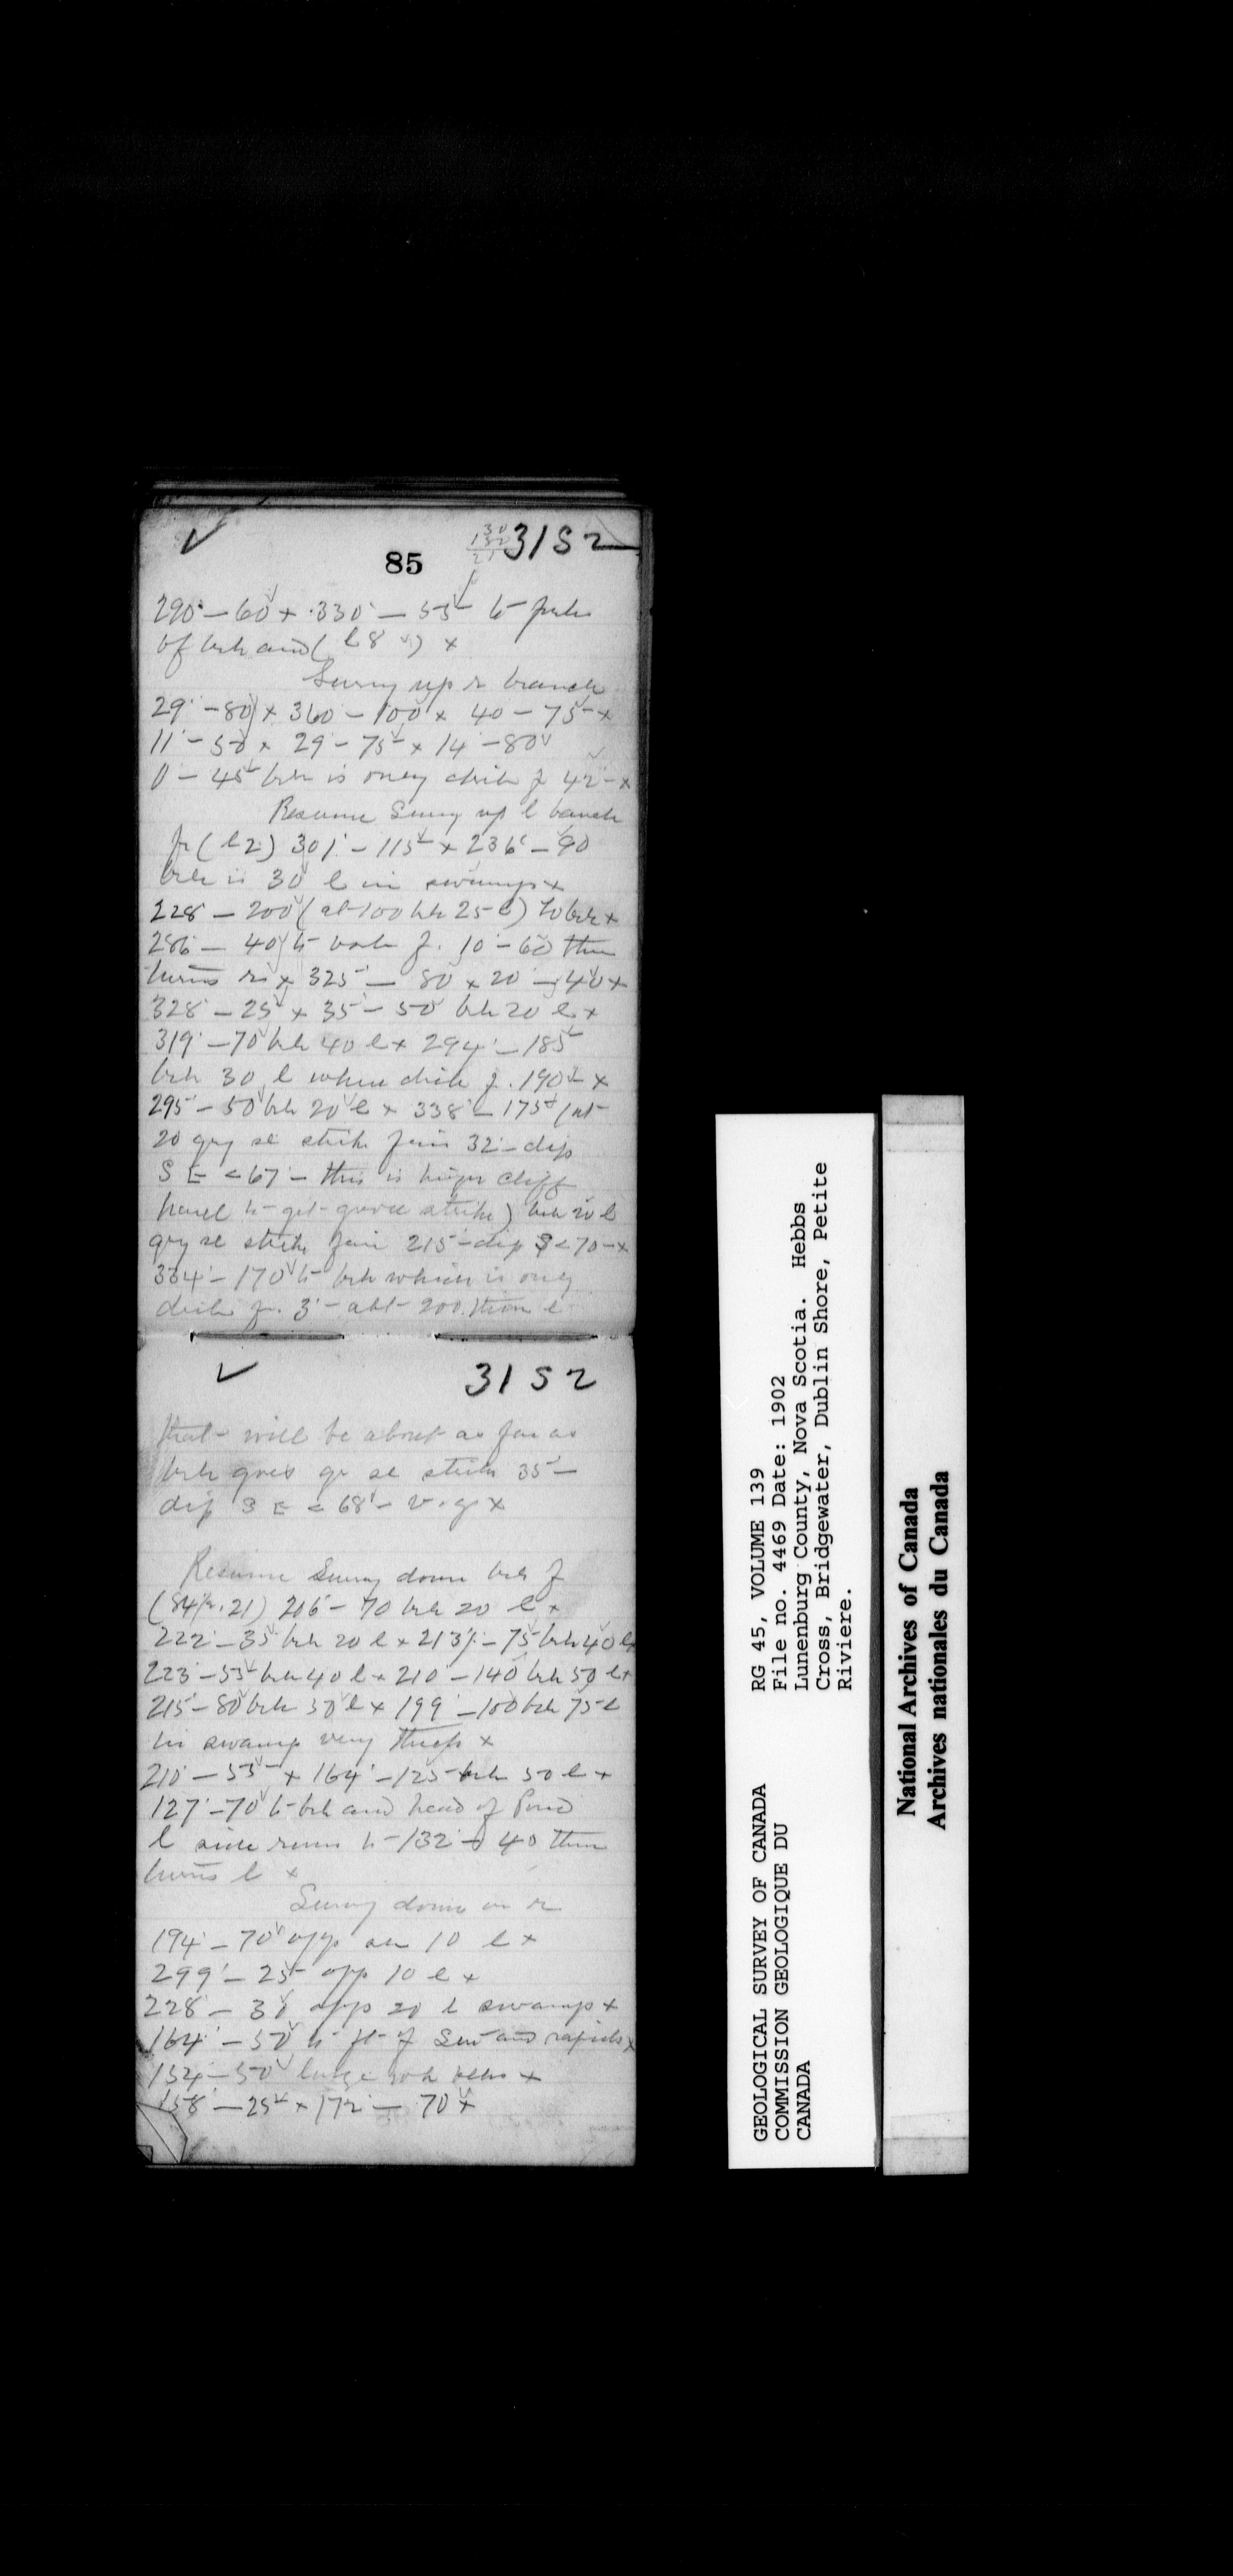 85
3152
290° - 60 × 330° - 55 to
of brk and (l 8) ×
Survey up r branch
29° - 80 × 360 - 100 × 40 - 75 ×
11° - 50 × 29 - 75 × 14° - 80
0 - 45 brk is only 42 ×
Resume Survey up l branch
(l 2) 301° - 115 × 236° - 90
brk is 30 l in swamp ×
228° - 200 (at 100 brk 25 l) 70 brk ×
286° - 40 to 10° - 60 then
turns r × 325° - 80 × 20° - 40 ×
328° - 25 × 35° - 50 brk 20 l ×
319° - 70 brk 40 l × 294° - 185
brk 30 l where 190 ×
295° - 50 brk 20 l × 338° - 175 (at
20 gry sl strike fair 32° - dip
S E < 67° - this is cliff
to get good strike) brk 20 l
gry sl strike fair 215° - dip S < 70 - ×
334° - 170 to brk which is only
3° - abt 200 then l
3152
that will be about as far as
brk goes gr sl strike 35° -
dip S E < 68° - v.g ×
Resume Survey down brk f
(84 p. 21) 206° - 70 brk 20 l ×
222° - 35 brk 20 l × 213° - 75 brk 40 l ×
223° - 55 brk 40 l × 210° - 140 brk 50 l ×
215° - 80 brk 50 l × 199° - 100 brk 75 l
in swamp very ×
210° - 55 × 164° - 125 brk 50 l ×
127° - 70 to brk and head of Pond
l side runs to 132° - 40 then
turns l ×
Survey down on r
194° - 70 opp 10 l ×
299° - 25 opp 10 l ×
228° - 30 opp 20 l swamp ×
164° - 50 to ft of and rapids ×
154° - 50 large ×
158° - 25 × 172° - 70 ×
RG 45, VOLUME 139
File no. 4469 Date: 1902
Lunenburg County, Nova Scotia. Hebbs
Cross, Bridgewater, Dublin Shore, Petite
Riviere.
GEOLOGICAL SURVEY OF CANADA
COMMISSION GEOLOGIQUE DU
CANADA
National Archives of Canada
Archives nationales du Canada